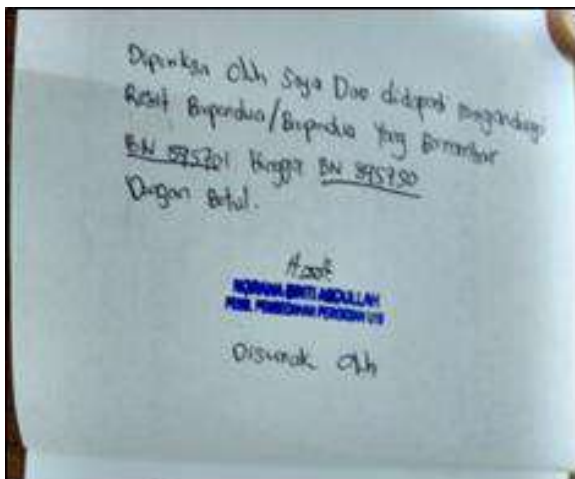 Diperiksa Oleh Saya Dan didapati Mengandungi
Resit Berpendua/Berpendua Yang Bernombor
BN 895701 Hingga BN 895750
Dengan Betul.
BINTI ABDULLAH
Disemak Oleh